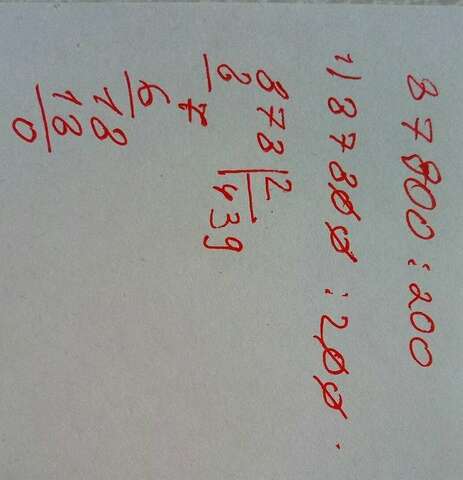 87800:200
1) 87800 : 200.
878 2
8 439
7
6
18
18
0